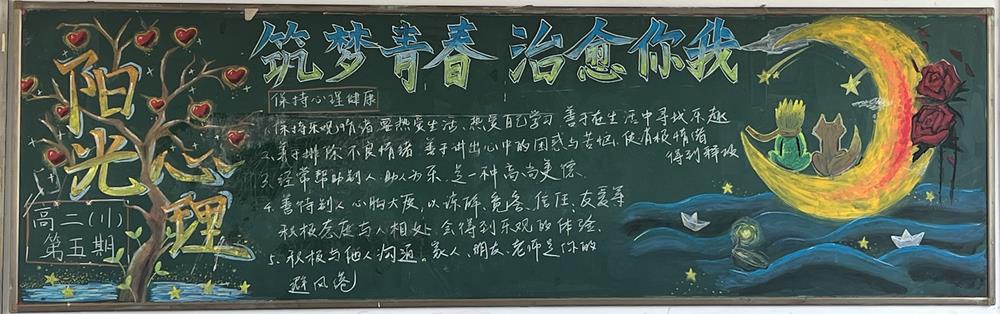 阳光心理
高二(11)
第五期
筑梦青春 治愈你我
保持心理健康
1.保持乐观的情绪要热爱生活、热爱自己学习 善于在生活中寻找乐趣
2.善于排除不良情绪 善于讲出心中的困惑与苦恼、使消极情绪
得到释放
3.经常帮助别人 助人为乐 是一种高尚美德.
4.善待别人 心胸大度,以谅解、宽容、信任、友爱等
积极态度与人相处 会得到乐观的体验.
5.积极与他人沟通。家人、朋友、老师是你的
避风港